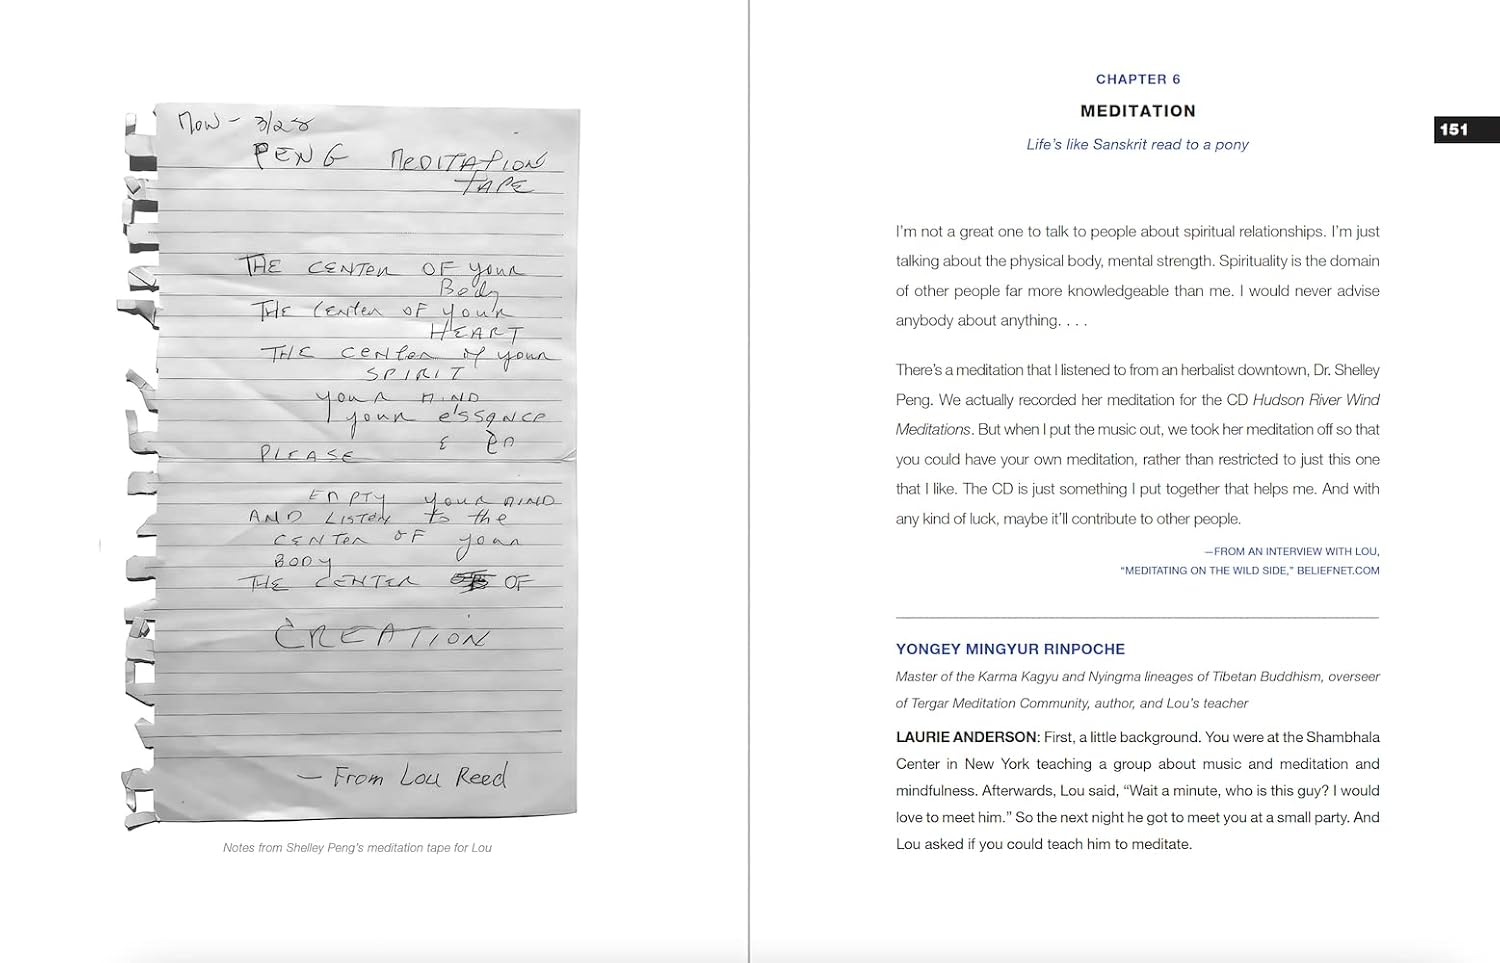 Mow - 3/28
PENG MEDITATION
TAPE
THE CENTER OF your
Body
THE CENTER OF your
HEART
THE CENTER of your
SPIRIT
your MIND
your e'ssance
&
PLEASE
EMPTY your MIND
AND LISTEN to the
CENTER OF your
BODY
THE CENTER OF
CREATION
— From Lou Reed
Notes from Shelley Peng's meditation tape for Lou
CHAPTER 6
MEDITATION
Life's like Sanskrit read to a pony
151
I'm not a great one to talk to people about spiritual relationships. I'm just
talking about the physical body, mental strength. Spirituality is the domain
of other people far more knowledgeable than me. I would never advise
anybody about anything. . . .
There's a meditation that I listened to from an herbalist downtown, Dr. Shelley
Peng. We actually recorded her meditation for the CD Hudson River Wind
Meditations. But when I put the music out, we took her meditation off so that
you could have your own meditation, rather than restricted to just this one
that I like. The CD is just something I put together that helps me. And with
any kind of luck, maybe it'll contribute to other people.
—FROM AN INTERVIEW WITH LOU,
"MEDITATING ON THE WILD SIDE," BELIEFNET.COM
YONGEY MINGYUR RINPOCHE
Master of the Karma Kagyu and Nyingma lineages of Tibetan Buddhism, overseer
of Tergar Meditation Community, author, and Lou's teacher
LAURIE ANDERSON: First, a little background. You were at the Shambhala
Center in New York teaching a group about music and meditation and
mindfulness. Afterwards, Lou said, "Wait a minute, who is this guy? I would
love to meet him." So the next night he got to meet you at a small party. And
Lou asked if you could teach him to meditate.